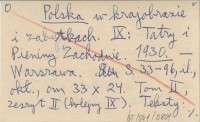 O
Polska w krajobrazie
i zabytkach. IX: Tatry i
Pieniny Zachodnie. 1930.
Warszawa. S. 33-96, il.,
okł., cm 33 x 24. Tom II,
zeszyt II (kolejny IX). Teksty.